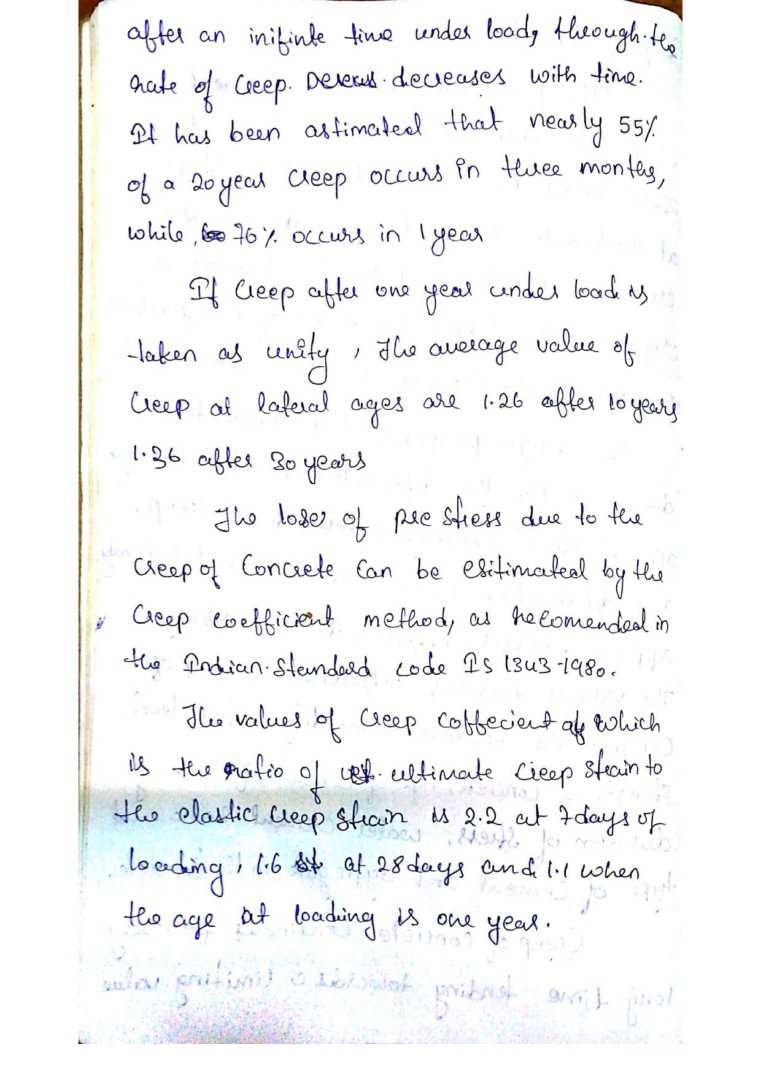 after an inifinte time under load, through the
rate of Creep. decreases with time.
It has been astimated that nearly 55%
of a 20 year Creep occurs in three months,
while, 76% occurs in 1 year
If Creep after one year under load is
taken as unity, The average value of
Creep at lateral ages are 1.26 after 10 years
1.36 after 30 years
The loser of pre stress due to the
Creep of Concrete Can be esitimated by the
Creep coefficient method, as recomended in
the Indian Standard code IS 1343-1980.
The values of Creep Coffecient which
is the ratio of ultimate Creep Strain to
the elastic Creep Strain is 2.2 at 7 days of
loading, 1.6 at 28 days and 1.1 when
the age at loading is one year.